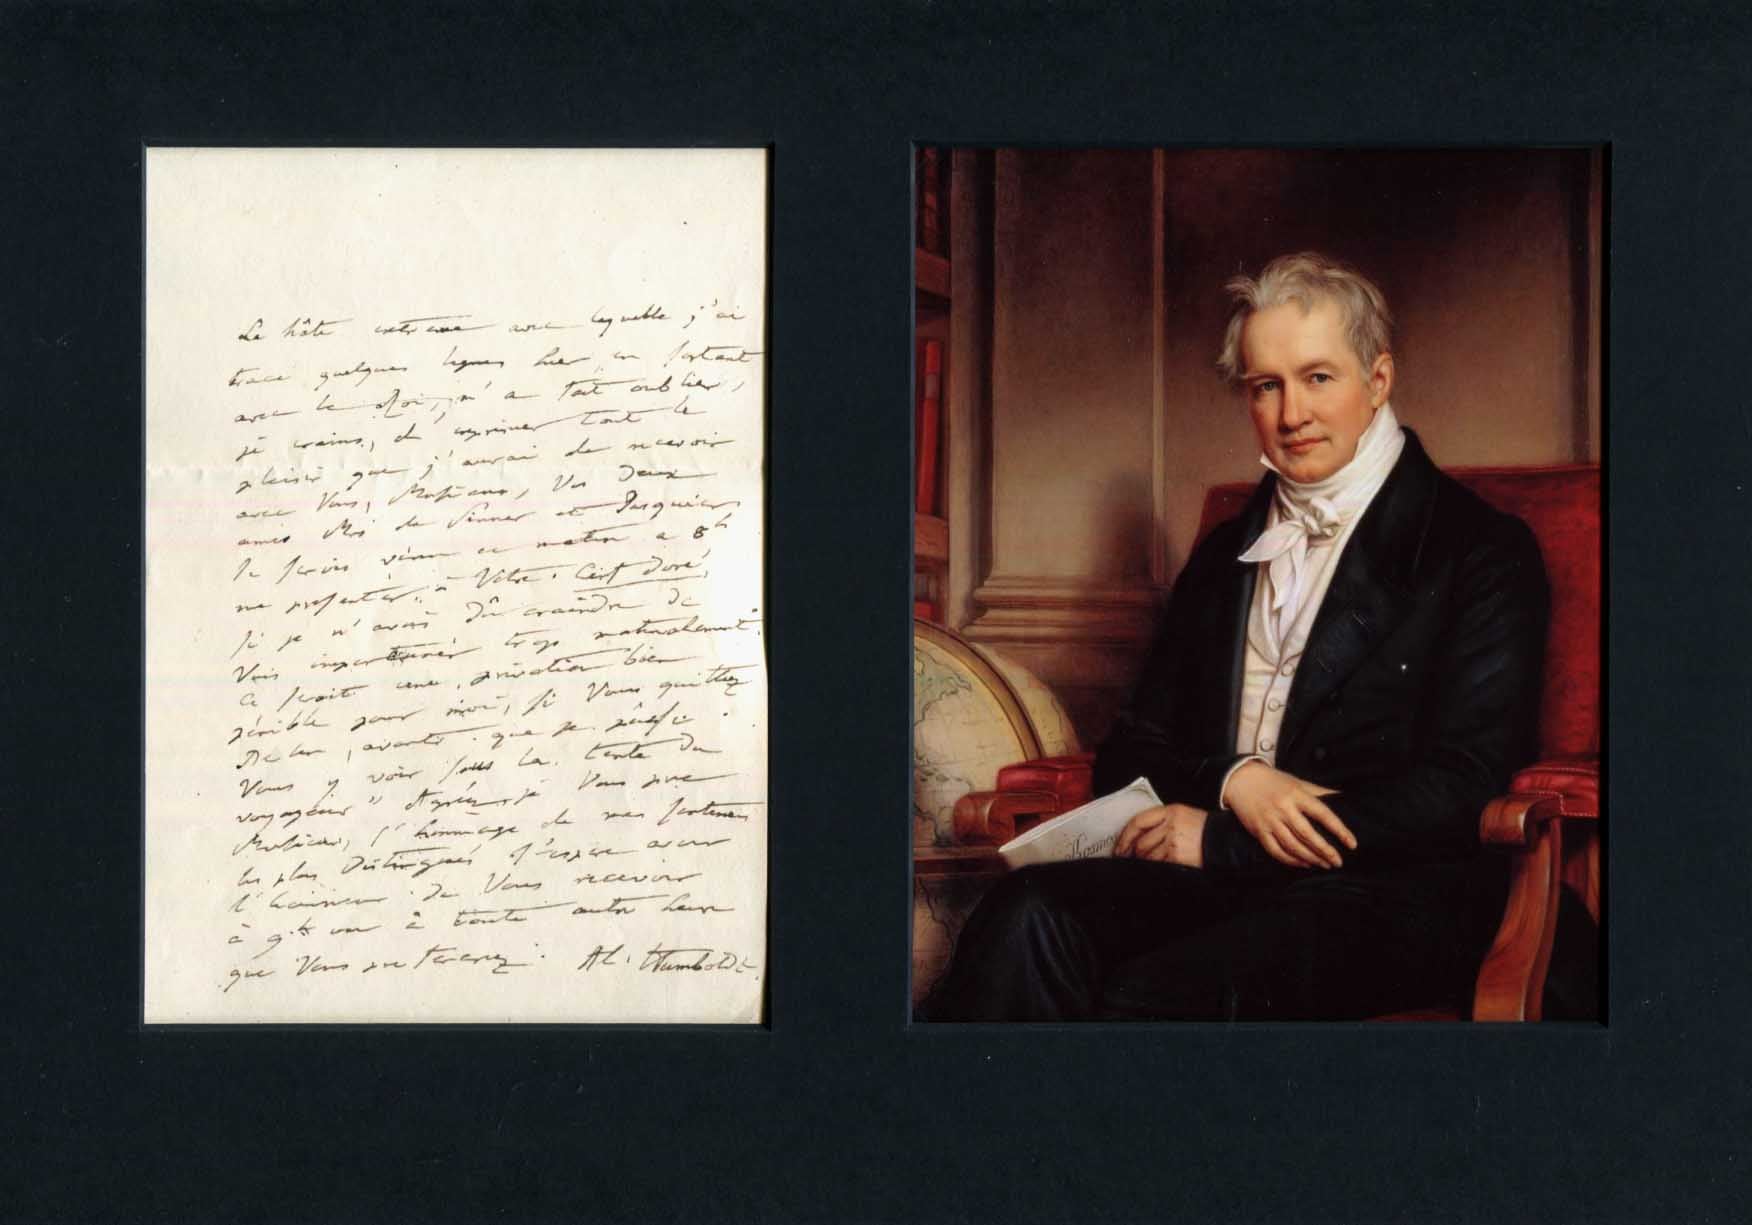 La hâte extreme avec laquelle j'ai
tracé quelques lignes hier en sortant
avec le Roi, m'a fait oublier,
je crains, d'exprimer tout le
plaisir que j'aurai de recevoir
avec Vous, Monsieur, Vos deux
amis Mrs de Sinner et Pasquier
Je serois venu ce matin a 8h
me presenter à Votre Cerf doré,
si je n'avois dû craindre de
Vous importuner trop matinalement.
Ce seroit une privation bien
pénible pour moi, si Vous quittez
Berlin, avant que je puisse
Vous y voir sous la tente du
voyageur" Agréez, je Vous prie
Monsieur, l'hommage de mes sentimens
les plus distingués J'espere avoir
l'honneur de Vous recevoir
à 9h ou à toute autre heure
que Vous prefererez. Al. Humboldt.
Kosmos